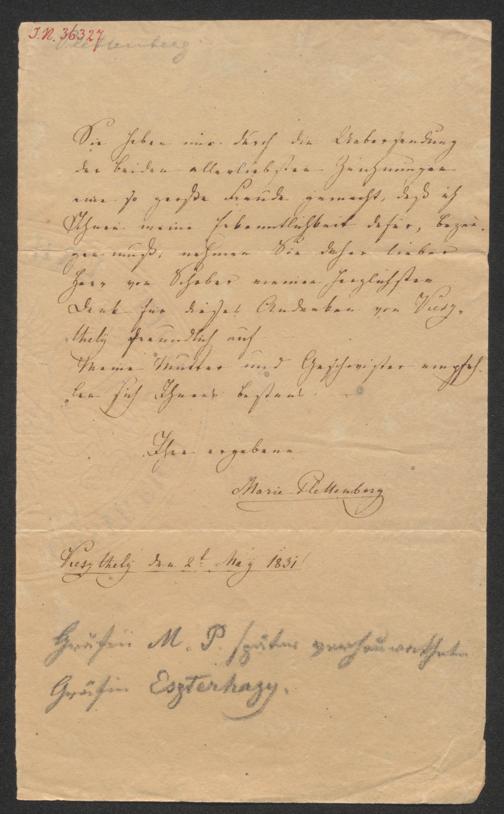 J.N. 36327
Plettenberg
Sie haben mir durch die Uebersendung
der beiden allerliebsten Zeichnungen
eine so große Freude gemacht, daß ich
Ihnen meine Erkenntlichkeit dafür, bezeu-
gen muß, nehmen Sie daher lieber
Herr von Schober meinen herzlichsten
Dank für dieses Andenken von Viesz-
thely freundlich auf
Meine Mutter und Geschwister empfeh-
len sich Ihnen bestens
Ihre ergebene
Marie Plettenberg
den 2t May 1831
Gräfin M. P. später verheurathete
Gräfin Eszterhazy.